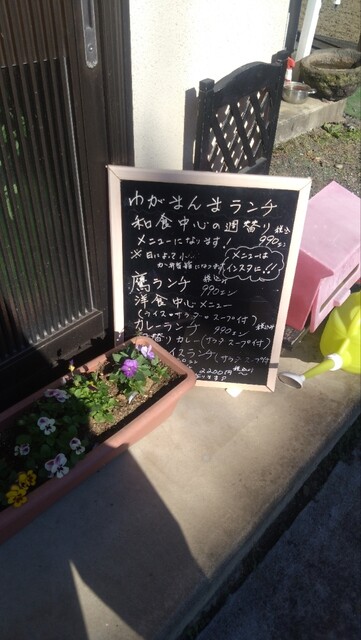 わがまんまランチ
和食中心の週替り 税込
メニューになります! 990エン
※日によって小
か弁当箱になります
メニューは
インスタに!!
鷹ランチ 税込み
990エン
洋食中心メニュー
(ライス・サラダ・スープ付)
カレーランチ 990エン 税込み
替りカレー(サラダ スープ付)
イスランチ(サラダ スープ付)
2200円 税込み